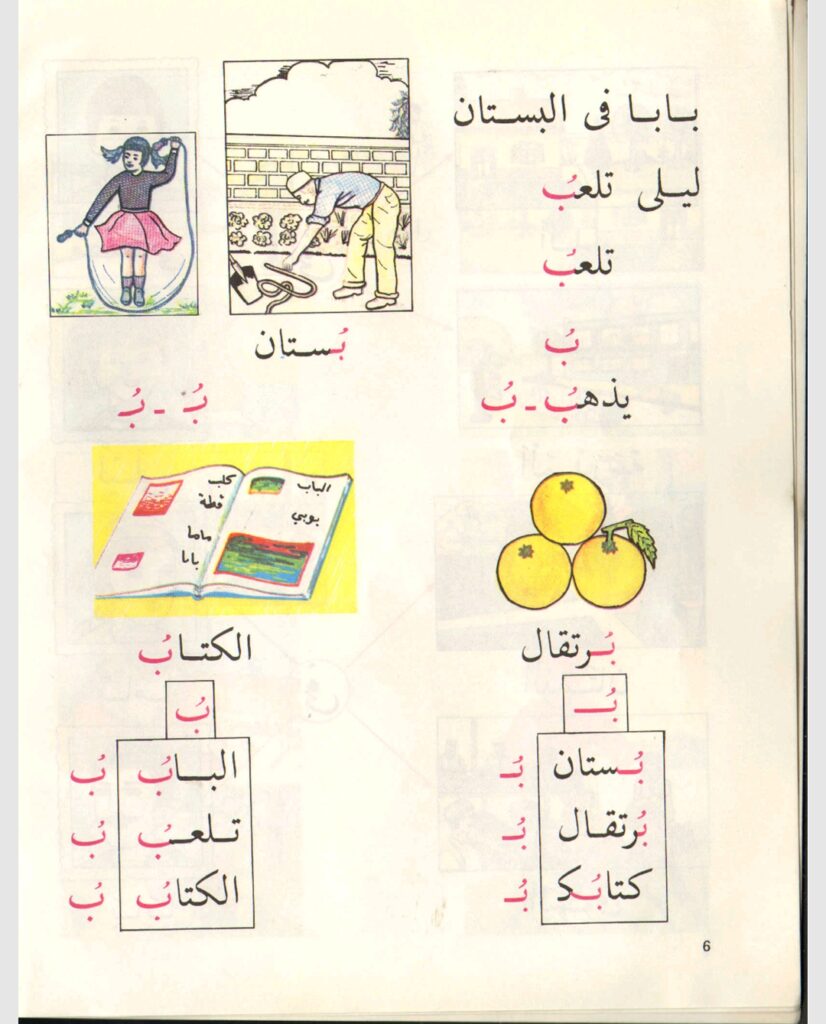 بـابـا فى البسـتان
ليـلى تلعبُ
تلعبُ
بُ
يذهبُ - بُ
بُسـتان
بُ - بُ
الباب
بوبي
كلب
قطة
ماما
بابا
بُرتقال
الكتـابُ
بُـ
بُستان بُـ
بُرتقـال بُـ
كتابُك بُـ
بُ
البـابُ بُ
تـلعـبُ بُ
الكتابُ بُ
6